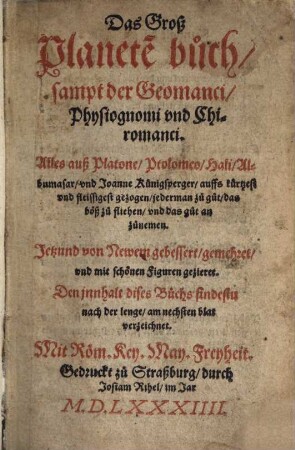 Das Groß
Planetē bůch/
sampt der Geomanci/
Physiognomi vnd Chi-
romanci.
Alles auß Platone/ Ptolomeo/ Hali/ Al-
bumasar/ vnd Joanne Künigsperger/ auffs kürtzest
vnd fleissigest gezogen/ jederman zů gůt/ das
böß zů fliehen/ vnd das gůt an
zůnemen.
Jetzund von Newem gebessert/ gemehret/
vnd mit schönen Figuren gezieret.
Den innhalt dises Bůchs findestu
nach der lenge/ am nechsten blat
verzeichnet.
Mit Röm. Key. May. Freyheit.
Gedruckt zů Straßburg/ durch
Josiam Rihel/ im Jar
M.D.LXXXIIII.